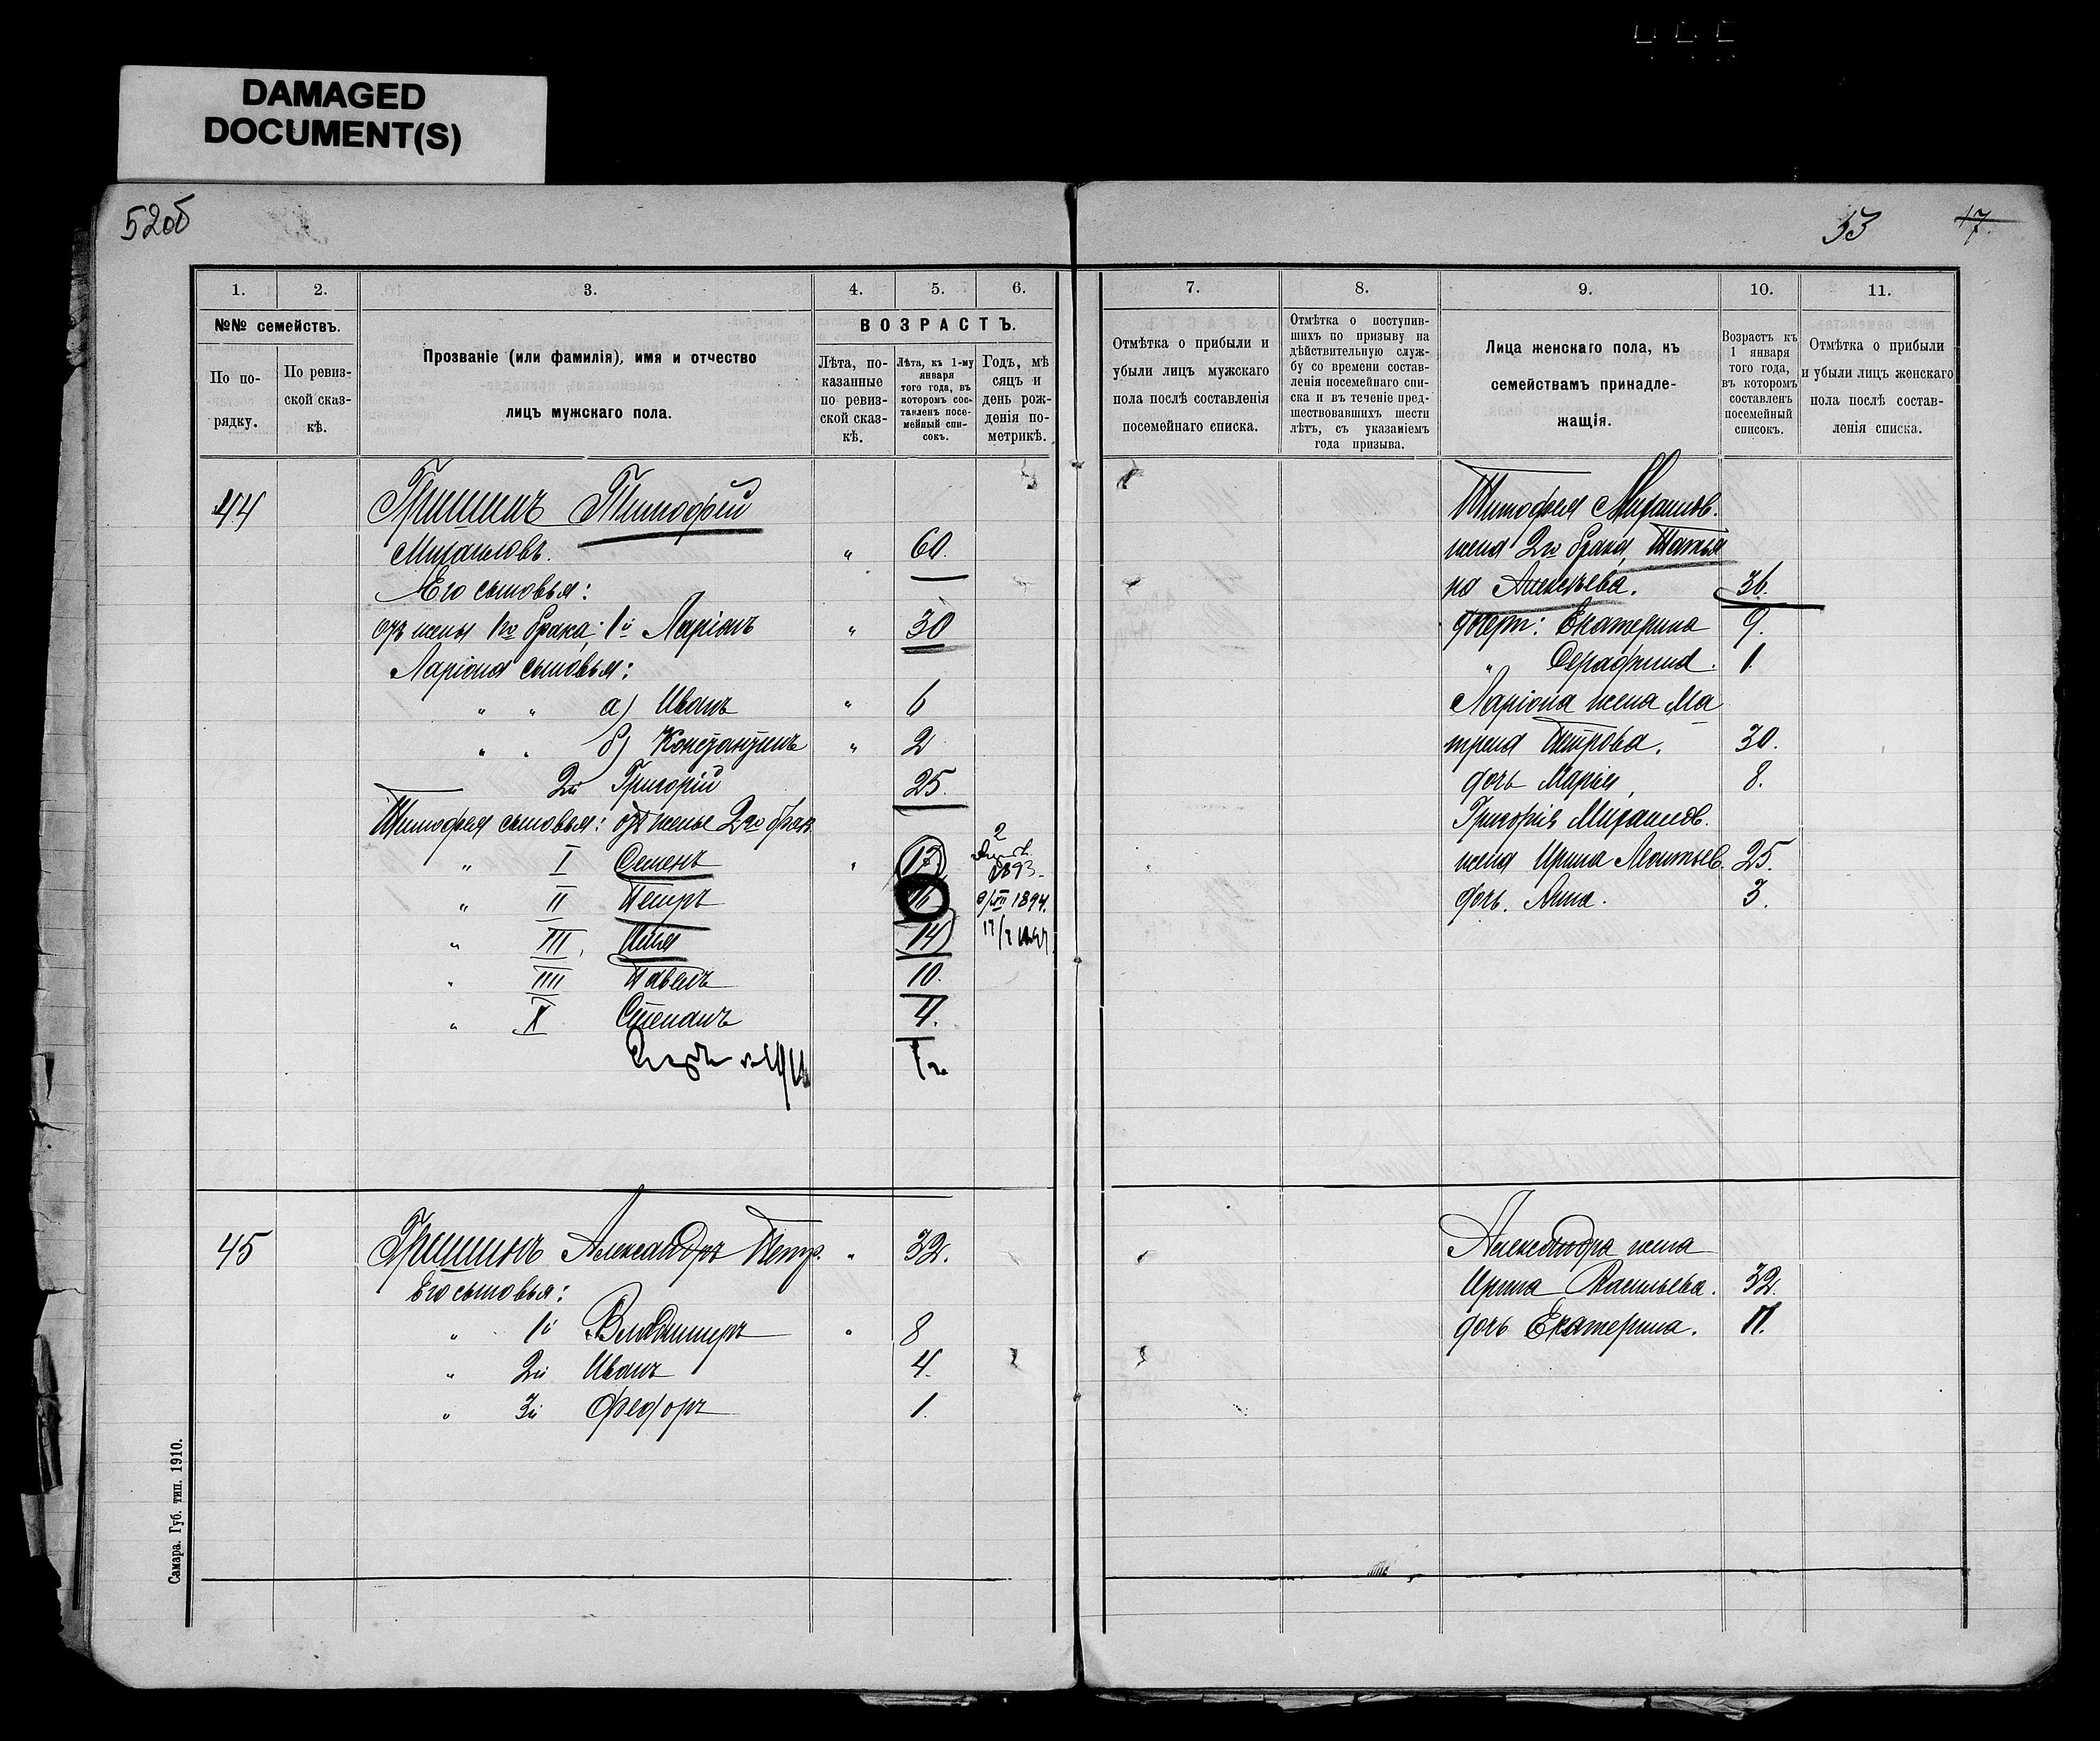 DAMAGED
DOCUMENT(S)
52об
53
17.
1.
2.
3.
4.
5.
6.
№№ семействъ.
По по-
рядку.
По ревиз-
ской сказ-
кѣ.
Прозваніе (или фамилія), имя и отчество
лицъ мужскаго пола.
ВОЗРАСТЪ.
Лѣта, по-
казанные
по ревиз-
ской сказ-
кѣ.
Лѣта, къ 1-му
января
того года, въ
которомъ сос-
тавленъ посе-
мейный спи-
сокъ.
Годъ, мѣ
сяцъ и
день рож-
денія по-
метрикѣ.
44
Гришинъ Тимофей
Михаиловъ. " 60.
Его сыновья:
отъ жены 1го брака: 1й Ларіонъ " 30
Ларіона сыновья:
" " а) Иванъ " 6
" " б) Константинъ " 2
2й Григорій 25.
Тимофея сыновья: отъ жены 2го брак.
" I Семенъ " 17 2 1893
" II Петръ 16 1894.
" III. Илья 14
" IIII Павелъ 10.
" X Степанъ 4.
45 Гришинъ Александръ Петр. " 32.
Его сыновья:
" 1й Владимиръ " 8
" 2й Иванъ 4.
" 3й Федоръ 1.
Самара. Губ. тип. 1910.
7.
8.
9.
10.
11.
Отмѣтка о прибыли и
убыли лицъ мужскаго
пола послѣ составленія
посемейнаго списка.
Отмѣтка о поступив-
шихъ по призыву на
дѣйствительную служ-
бу со времени состав-
ленія посемейнаго спи-
ска и въ теченіе пред-
шествовавшихъ шести
лѣтъ, съ указаніемъ
года призыва.
Лица женскаго пола, къ
семействамъ принадле-
жащія.
Возрастъ къ
1 января
того года,
въ которомъ
составленъ
посемейный
списокъ.
Отмѣтка о прибыли
и убыли лицъ женскаго
пола послѣ состав-
ленія списка.
Тимофея Михаилов.
жена 2го брака, Татья
на Алексѣева. 36.
дочери: Екатерина 9.
" Серафима. 1.
Ларіона жена Ма
трена Петрова. 30.
дочь Марья, 8.
Григорія Михаилов.
жена Ирина Леонтьев. 25.
дочь. Анна. 3.
Александра жена
Ирина Васильева. 32.
дочь Екатерина. 11.